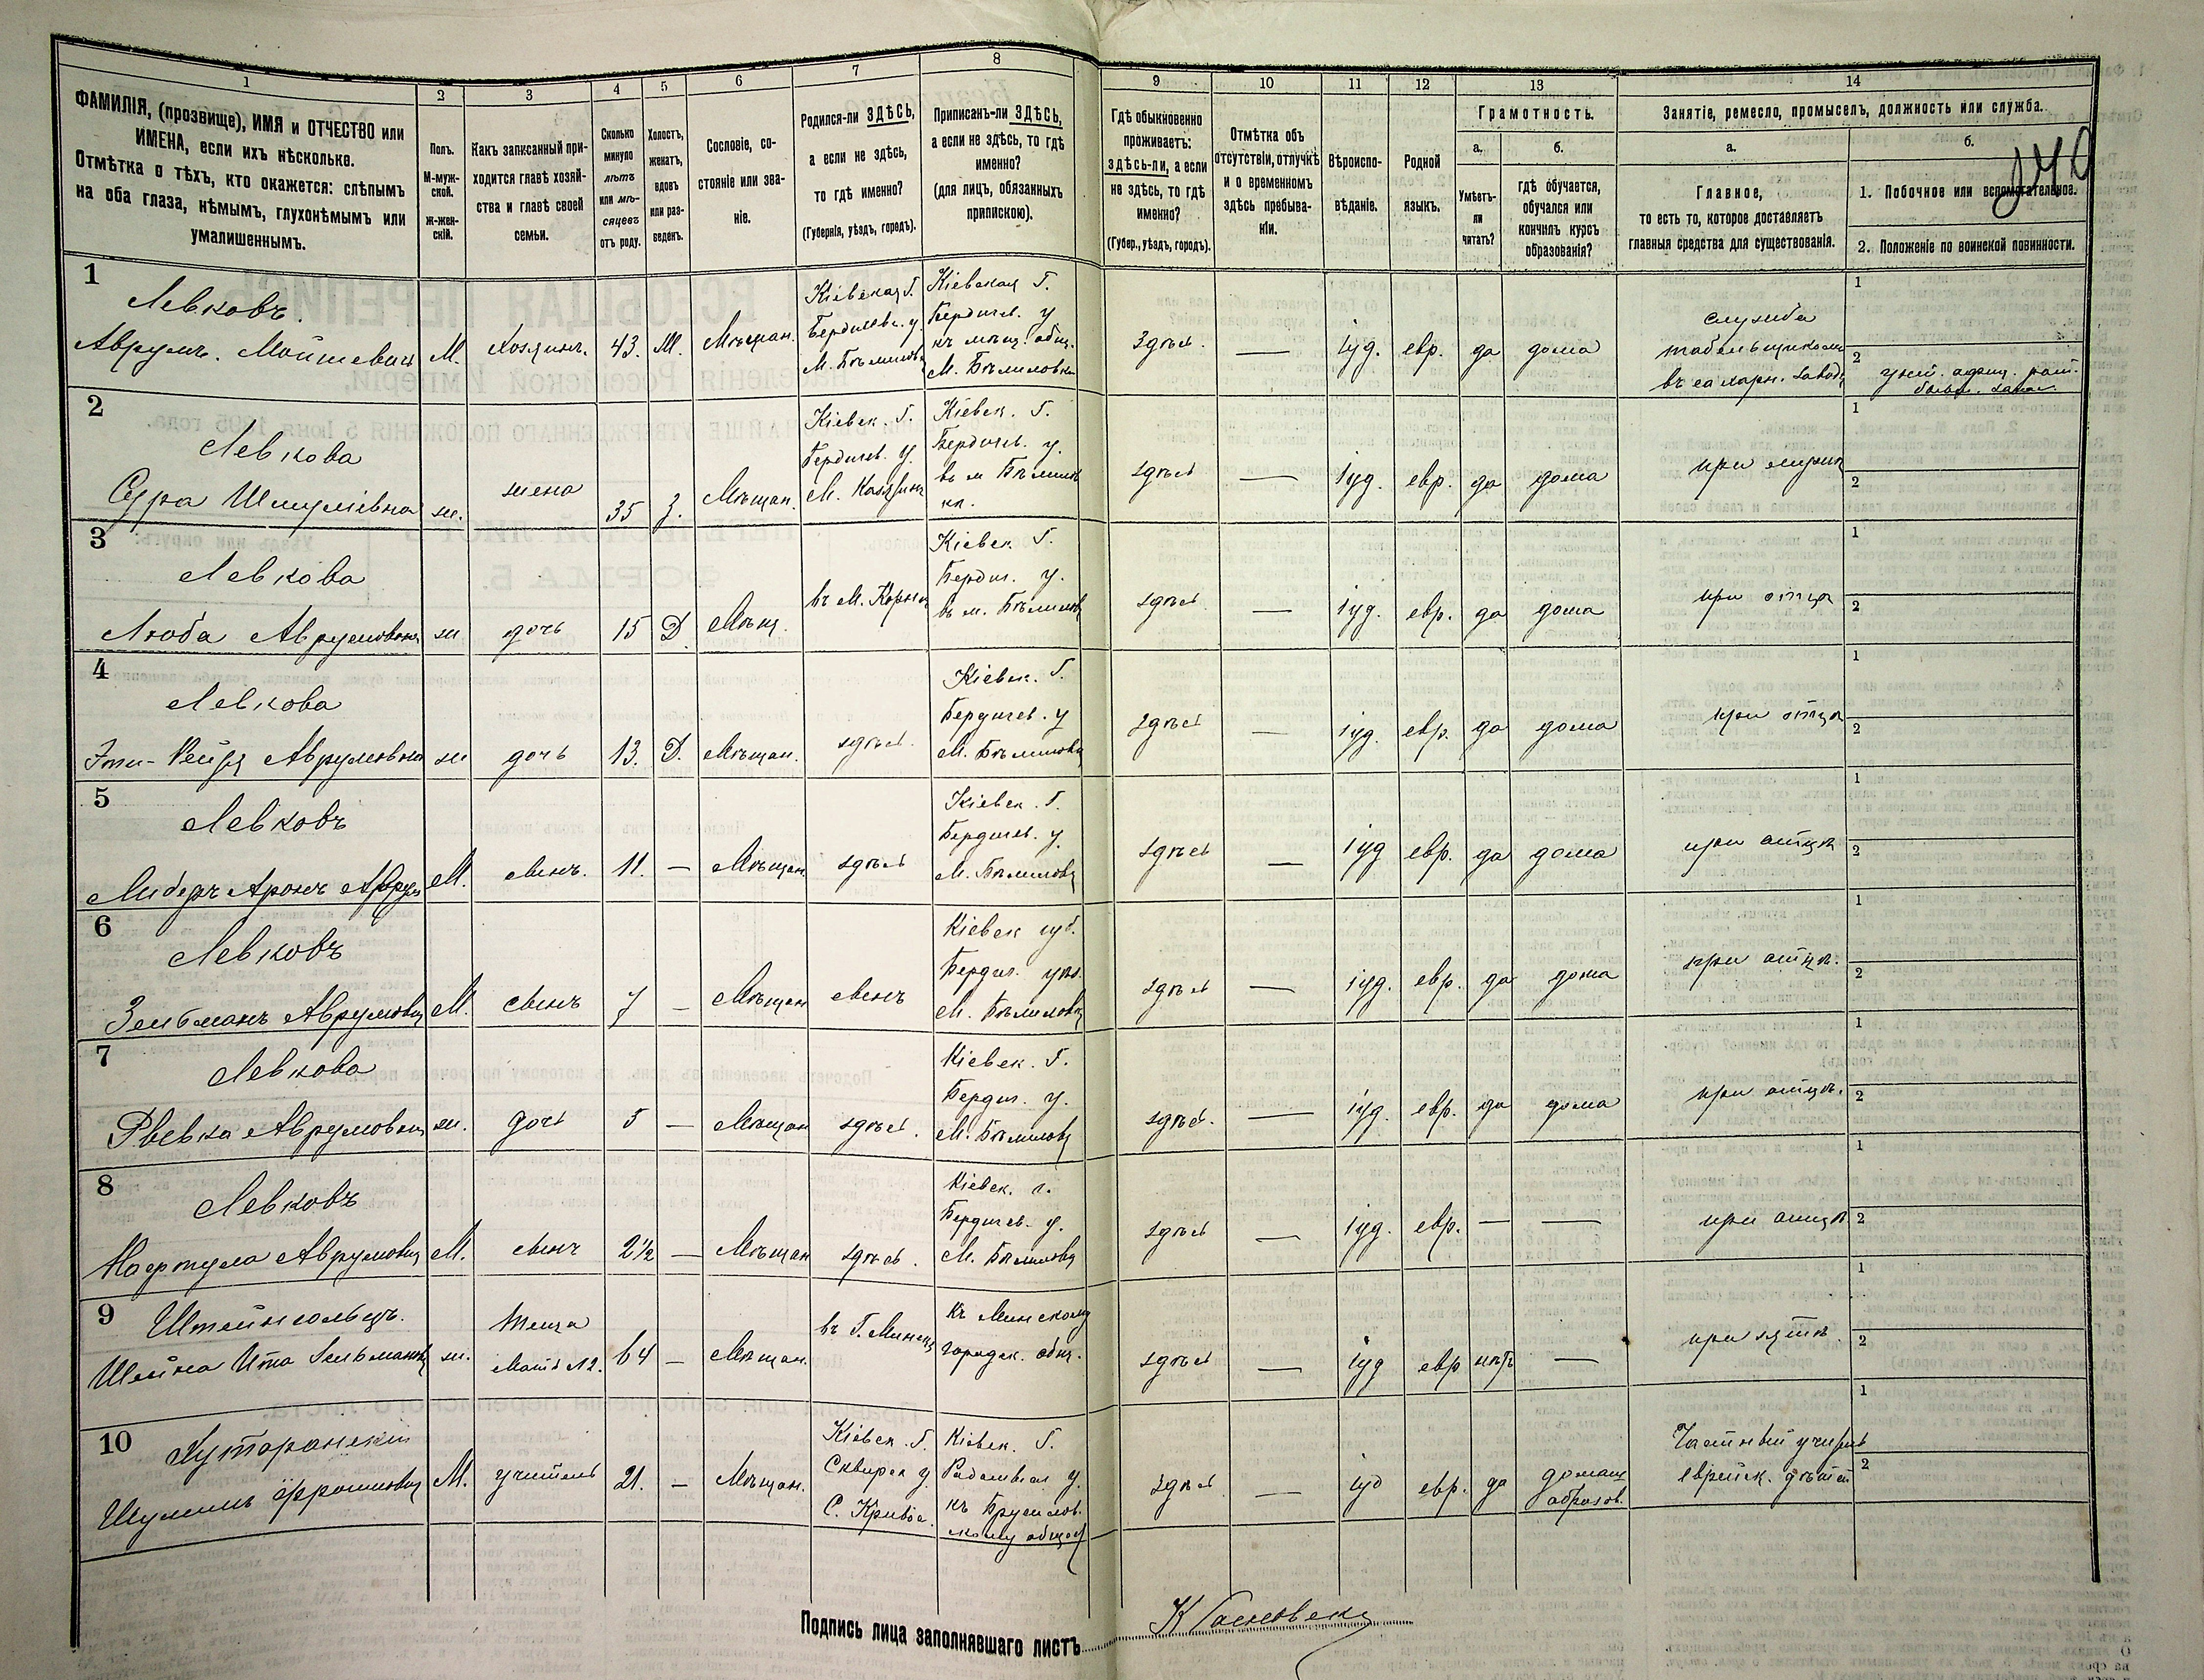 1
2
3
4
5
6
7
8
9
10
11
12
13
14
ФАМИЛІЯ, (прозвище), ИМЯ и ОТЧЕСТВО или
ИМЕНА, если ихъ нѣсколько.
Отмѣтка о тѣхъ, кто окажется: слѣпымъ
на оба глаза, нѣмымъ, глухонѣмымъ или
умалишеннымъ.
Полъ.
М-муж-
ской.
ж-жен-
скій.
Какъ записанный при-
ходится главѣ хозяй-
ства и главѣ своей
семьи.
Сколько
минуло
лѣтъ
или мѣ-
сяцевъ
отъ роду.
Холостъ,
женатъ,
вдовъ
или раз-
веденъ.
Сословіе, со-
стояніе или зва-
ніе.
Родился-ли ЗДѢСЬ,
а если не здѣсь,
то гдѣ именно?
(Губернія, уѣздъ, городъ).
Приписанъ-ли ЗДѢСЬ,
а если не здѣсь, то гдѣ
именно?
(для лицъ, обязанныхъ
припискою).
Гдѣ обыкновенно
проживаетъ:
здѣсь-ли, а если
не здѣсь, то гдѣ
именно?
(Губер., уѣздъ, городъ).
Отмѣтка объ
отсутствіи, отлучкѣ
и о временномъ
здѣсь пребыва-
ніи.
Вѣроиспо-
вѣданіе.
Родной
языкъ.
Грамотность.
а.
Умѣетъ-
ли
читать?
б.
гдѣ обучается,
обучался или
кончилъ курсъ
образованія?
Занятіе, ремесло, промыселъ, должность или служба.
а.
Главное,
то есть то, которое доставляетъ
главныя средства для существованія.
б.
1. Побочное или вспомогательное.
2. Положеніе по воинской повинности.
1
Левковъ.
Аврумъ. Мойшевичъ
М.
Хозяинъ.
43.
Ж.
Мѣщан.
Кіевская Г.
Бердичевс. у.
М. Бѣлиловка
Кіевская Г.
Бердичев. у
къ мѣщ. общ.
М. Бѣлиловка
Здѣсь.
іуд.
евр.
да
дома
служба
табельщикомъ
въ сахарн. заводѣ
1
2
2
Левкова
Сура Шмулівна
ж.
жена
35
З.
Мѣщан.
Кіевск. Г.
Бердичев. у.
М. Казатинъ
Кіевск. Г.
Бердичев. у.
въ м Бѣлилов
кѣ.
здѣсь
іуд.
евр.
да
дома
при мужѣ
1
2
3
Левкова
Люба Аврумовна
ж
дочь
15
Д
Мѣщ.
Кіевск Г.
Бердич. у.
въ м. Бѣлиловк
здѣсь
іуд.
евр.
да
дома
при отцѣ
1
2
4
Левкова
Аврумовна
ж
дочь
13.
Д.
Мѣщан.
здѣсь.
Кіевск. Г.
Бердичев. у
М. Бѣлиловк
здѣсь
іуд.
евр.
да
дома
при отцѣ
1
2
5
Левковъ
Либеръ Аронъ Аврум
М.
сынъ.
11.
—
Мѣщан
здѣсь
Кіевск. Г.
Бердичев. у.
М. Бѣлиловк
здѣсь
іуд
евр.
да
дома
при отцѣ
1
2
6
Левковъ
Зельманъ Аврумовичъ
М.
сынъ
7
—
Мѣщан
сынъ
Кіевск губ.
Бердич. уѣз.
М. Бѣлиловк
здѣсь
іуд.
евр.
да
дома
при отцѣ.
1
2
7
Левкова
Ривка Аврумовна
ж.
дочь
5
—
Мѣщан
здѣсь.
Кіевск. Г.
Бердич. у.
М. Бѣлиловк
здѣсь.
іуд.
евр.
да
дома
при отцѣ.
1
2
8
Левковъ
Аврумовичъ
М.
сынъ
2½
—
Мѣщан
здѣсь.
Кіевск. г.
Бердичев. у.
М. Бѣлиловк
здѣсь
іуд.
евр.
—
—
при отцѣ
1
2
9
Штейнгольцъ.
Шейна Ита Зельмановна
ж.
теща
Мать №2.
64
—
Мѣщан.
въ Г. Минскѣ
Къ Минскому
городск. общ.
здѣсь
іуд
евр
нѣтъ
—
при зятѣ.
1
2
10
Хуторанскій
Шулимъ
М.
учитель
21.
—
Мѣщан.
Кіевск. Г.
Сквирск у.
С. Кривое.
Кіевск. Г.
Радомысл у.
къ Брусилов.
скому общест
здѣсь
іуд
евр.
да
домашн
образов.
Частный учитель
еврейск. дѣтей
1
2
Подпись лица заполнявшаго листъ